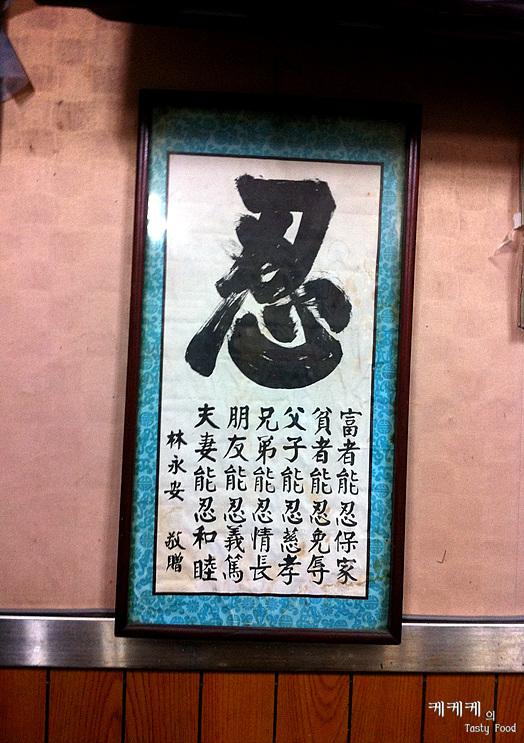 忍
富者能忍保家
貧者能忍免辱
父子能忍慈孝
兄弟能忍情長
朋友能忍義篤
夫妻能忍和睦
林永安 敬贈
케케케의
Tasty Food